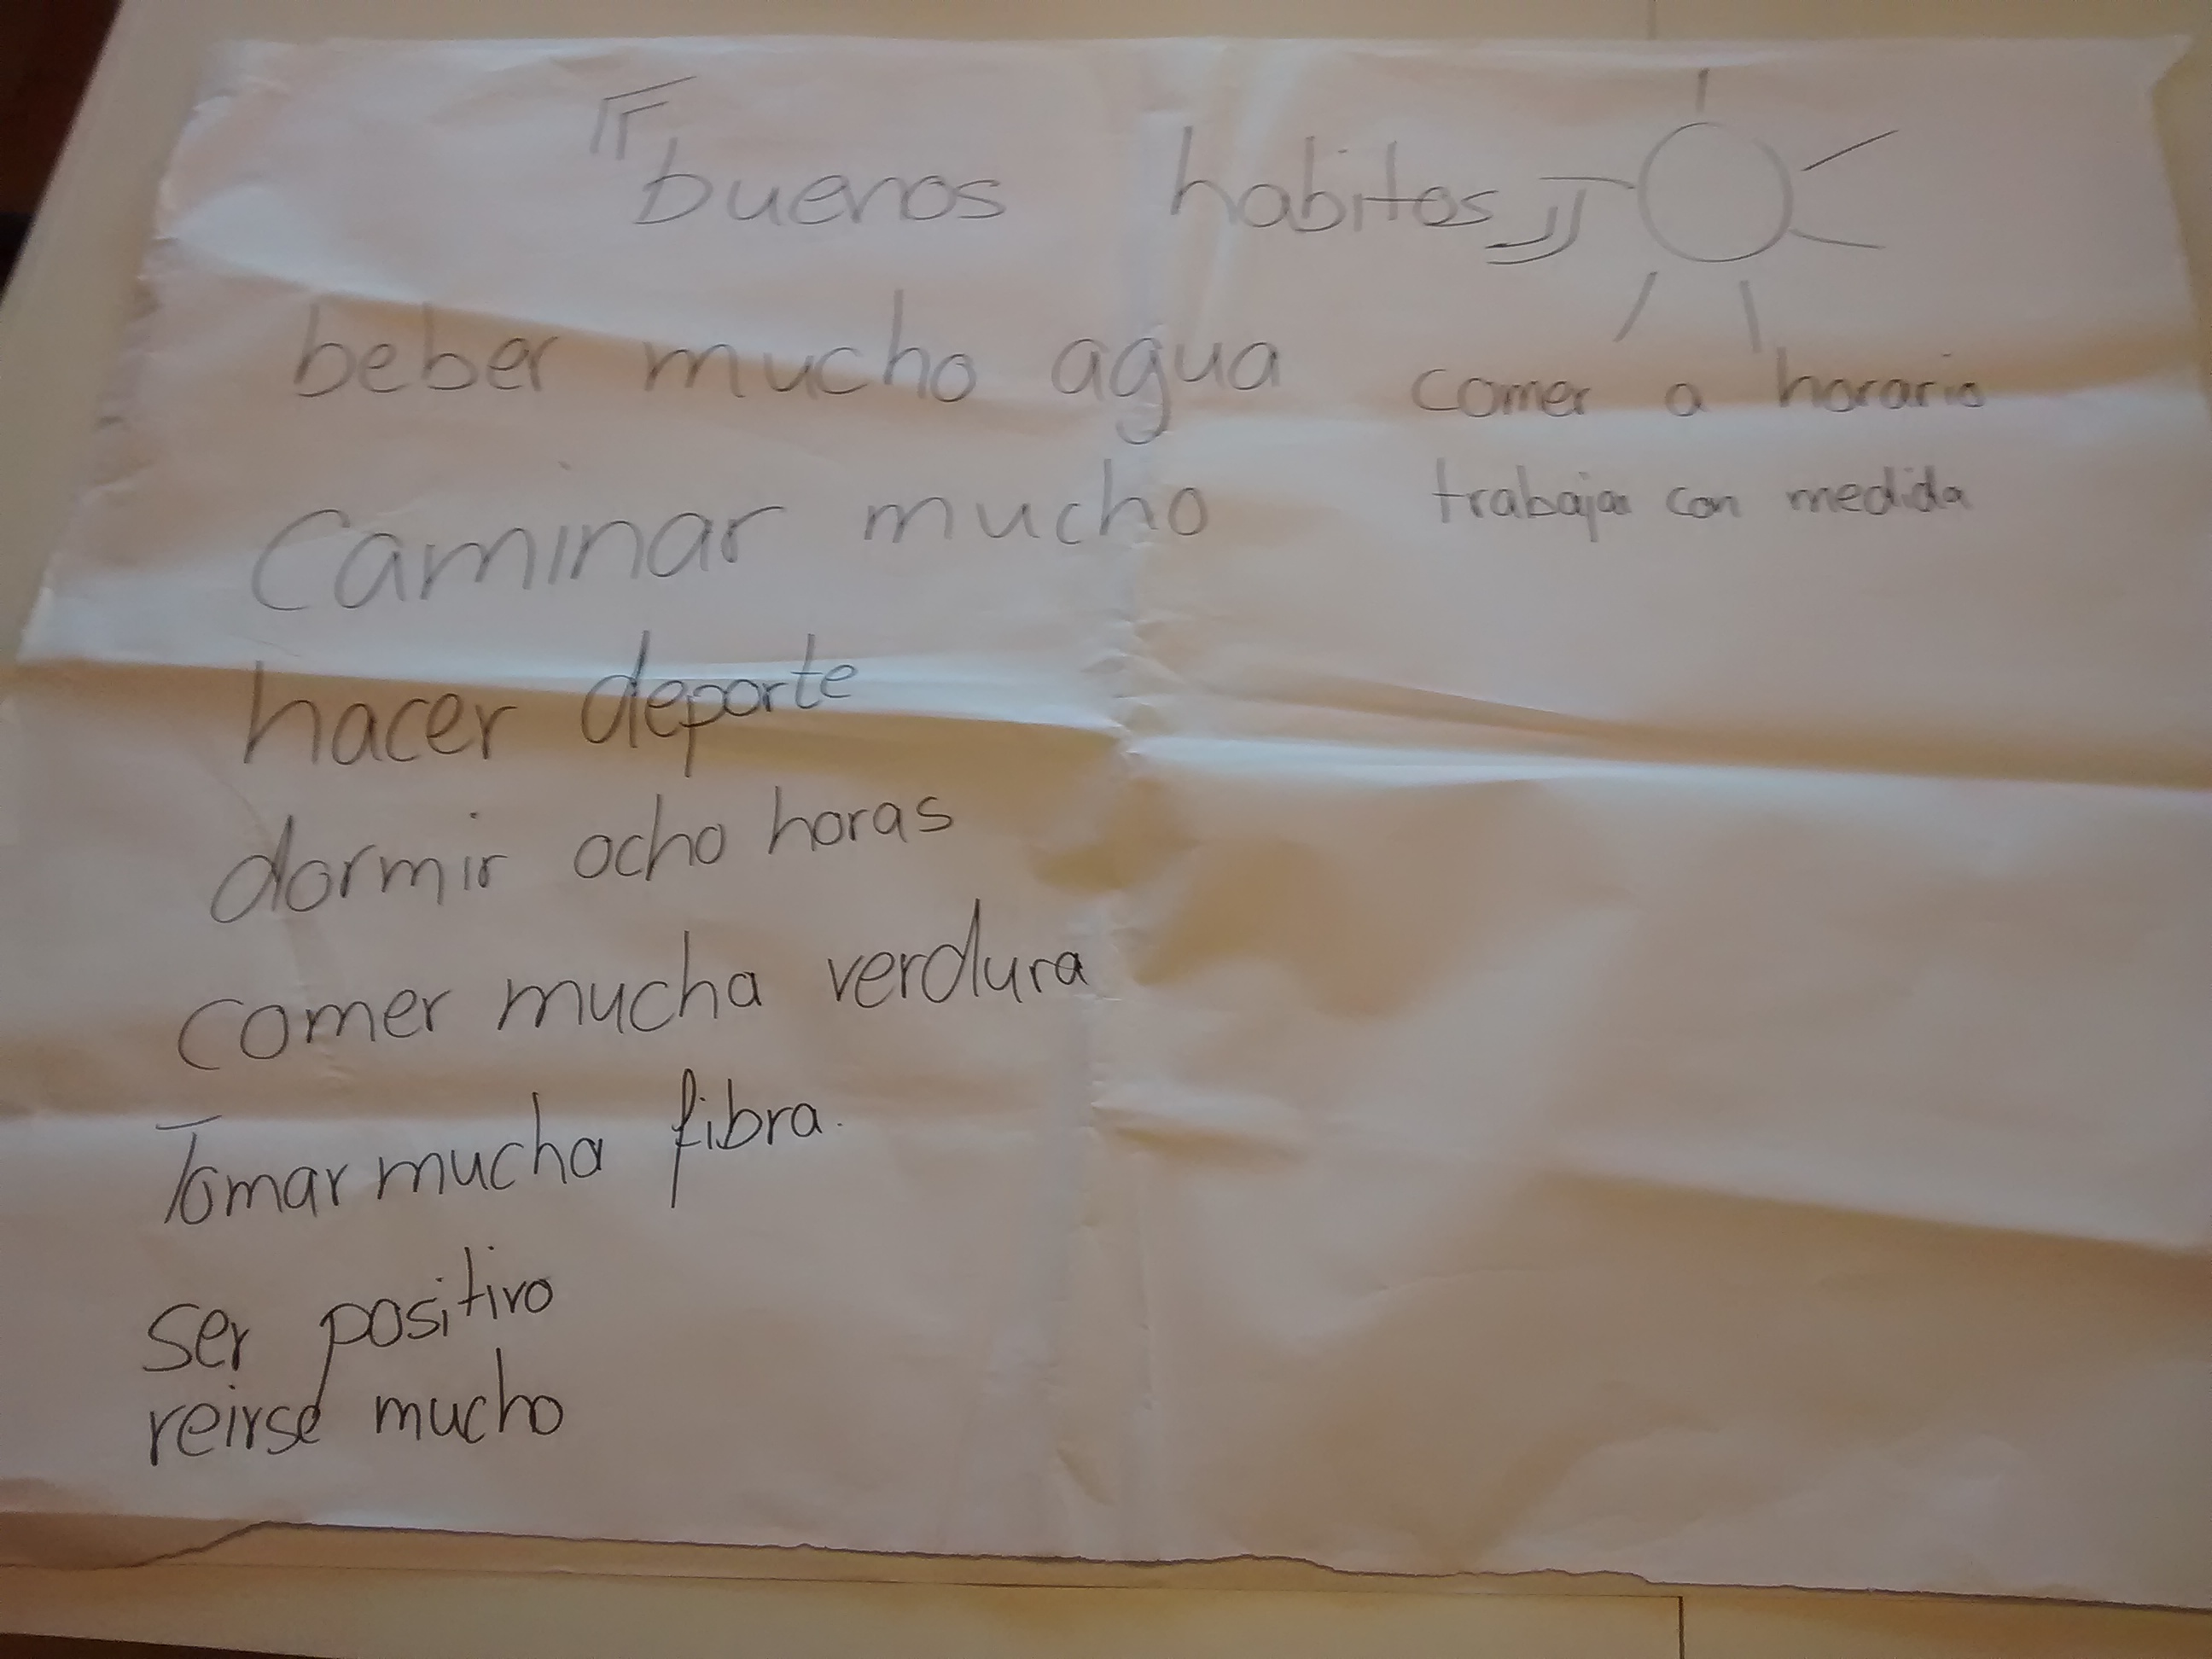 buenos habitos
beber mucho agua
Caminar mucho
hacer deporte
dormir ocho horas
comer mucha verdura
Tomar mucha fibra.
ser positivo
reirse mucho
comer a horario
trabajar con medida